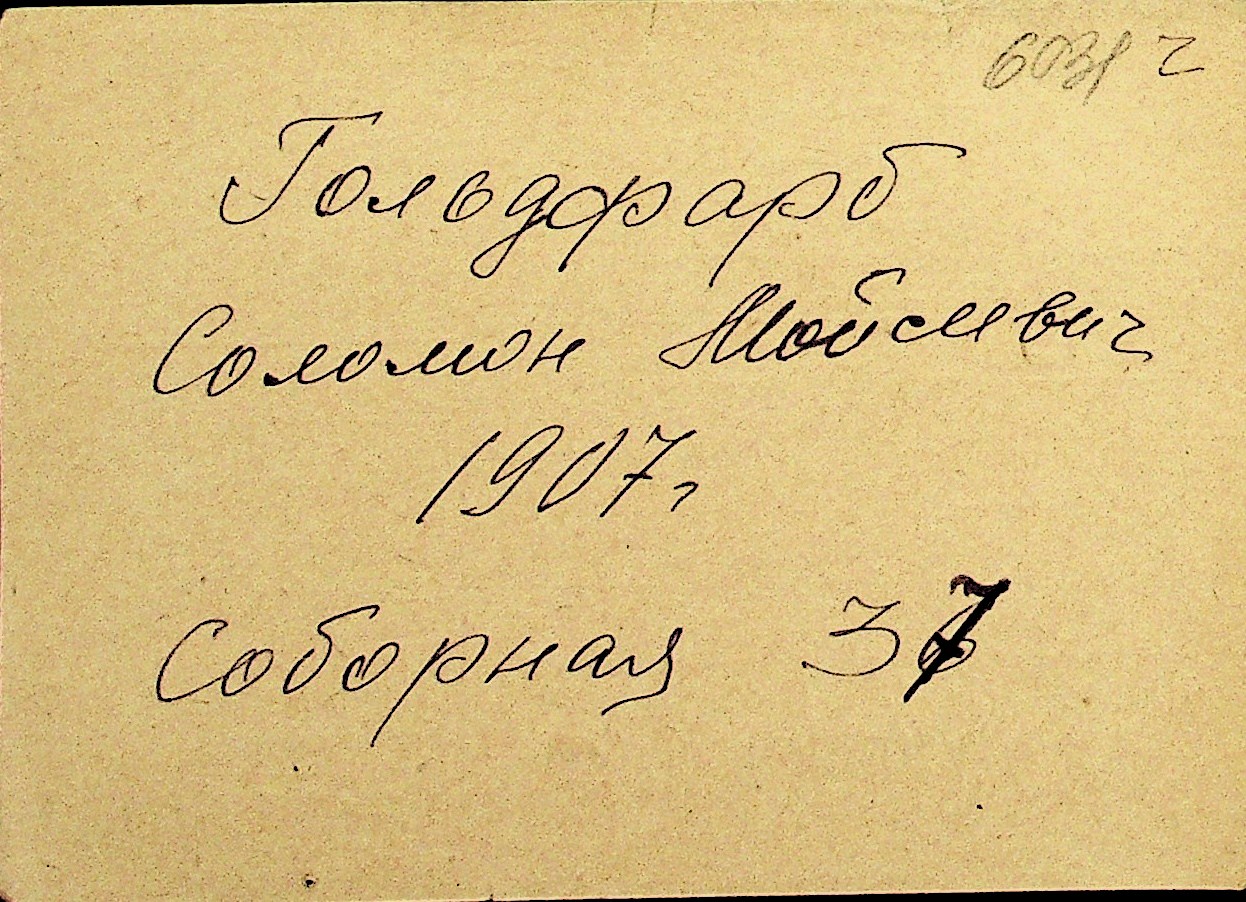 6031 ч
Гольдфарб
Соломон Мойсеевич
1907г
Соборная 37